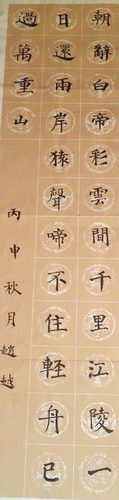 朝辭白帝彩雲間千里江陵一
日還兩岸猿聲啼不住軽舟已
過萬重山
丙申秋月趙越